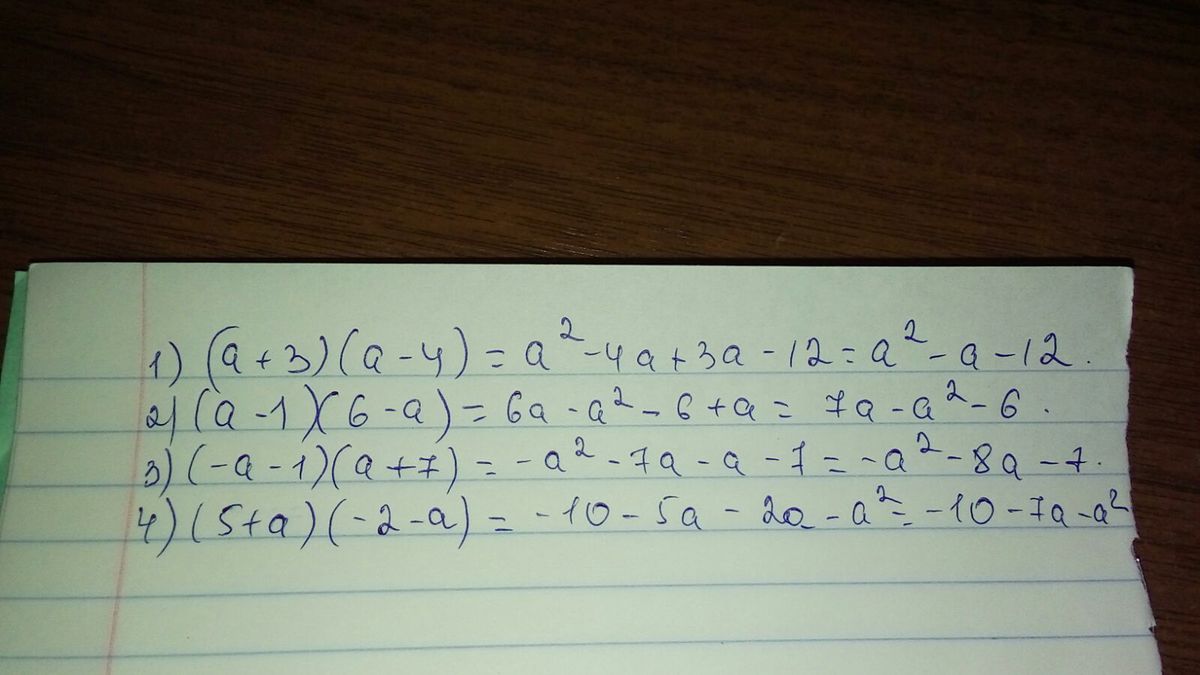 1) (a+3)(a-4) = a²-4a+3a-12 = a²-a-12.
2) (a-1)(6-a) = 6a-a²-6+a = 7a-a²-6.
3) (-a-1)(a+7) = -a²-7a-a-7 = -a²-8a-7.
4) (5+a)(-2-a) = -10-5a-2a-a² = -10-7a-a²